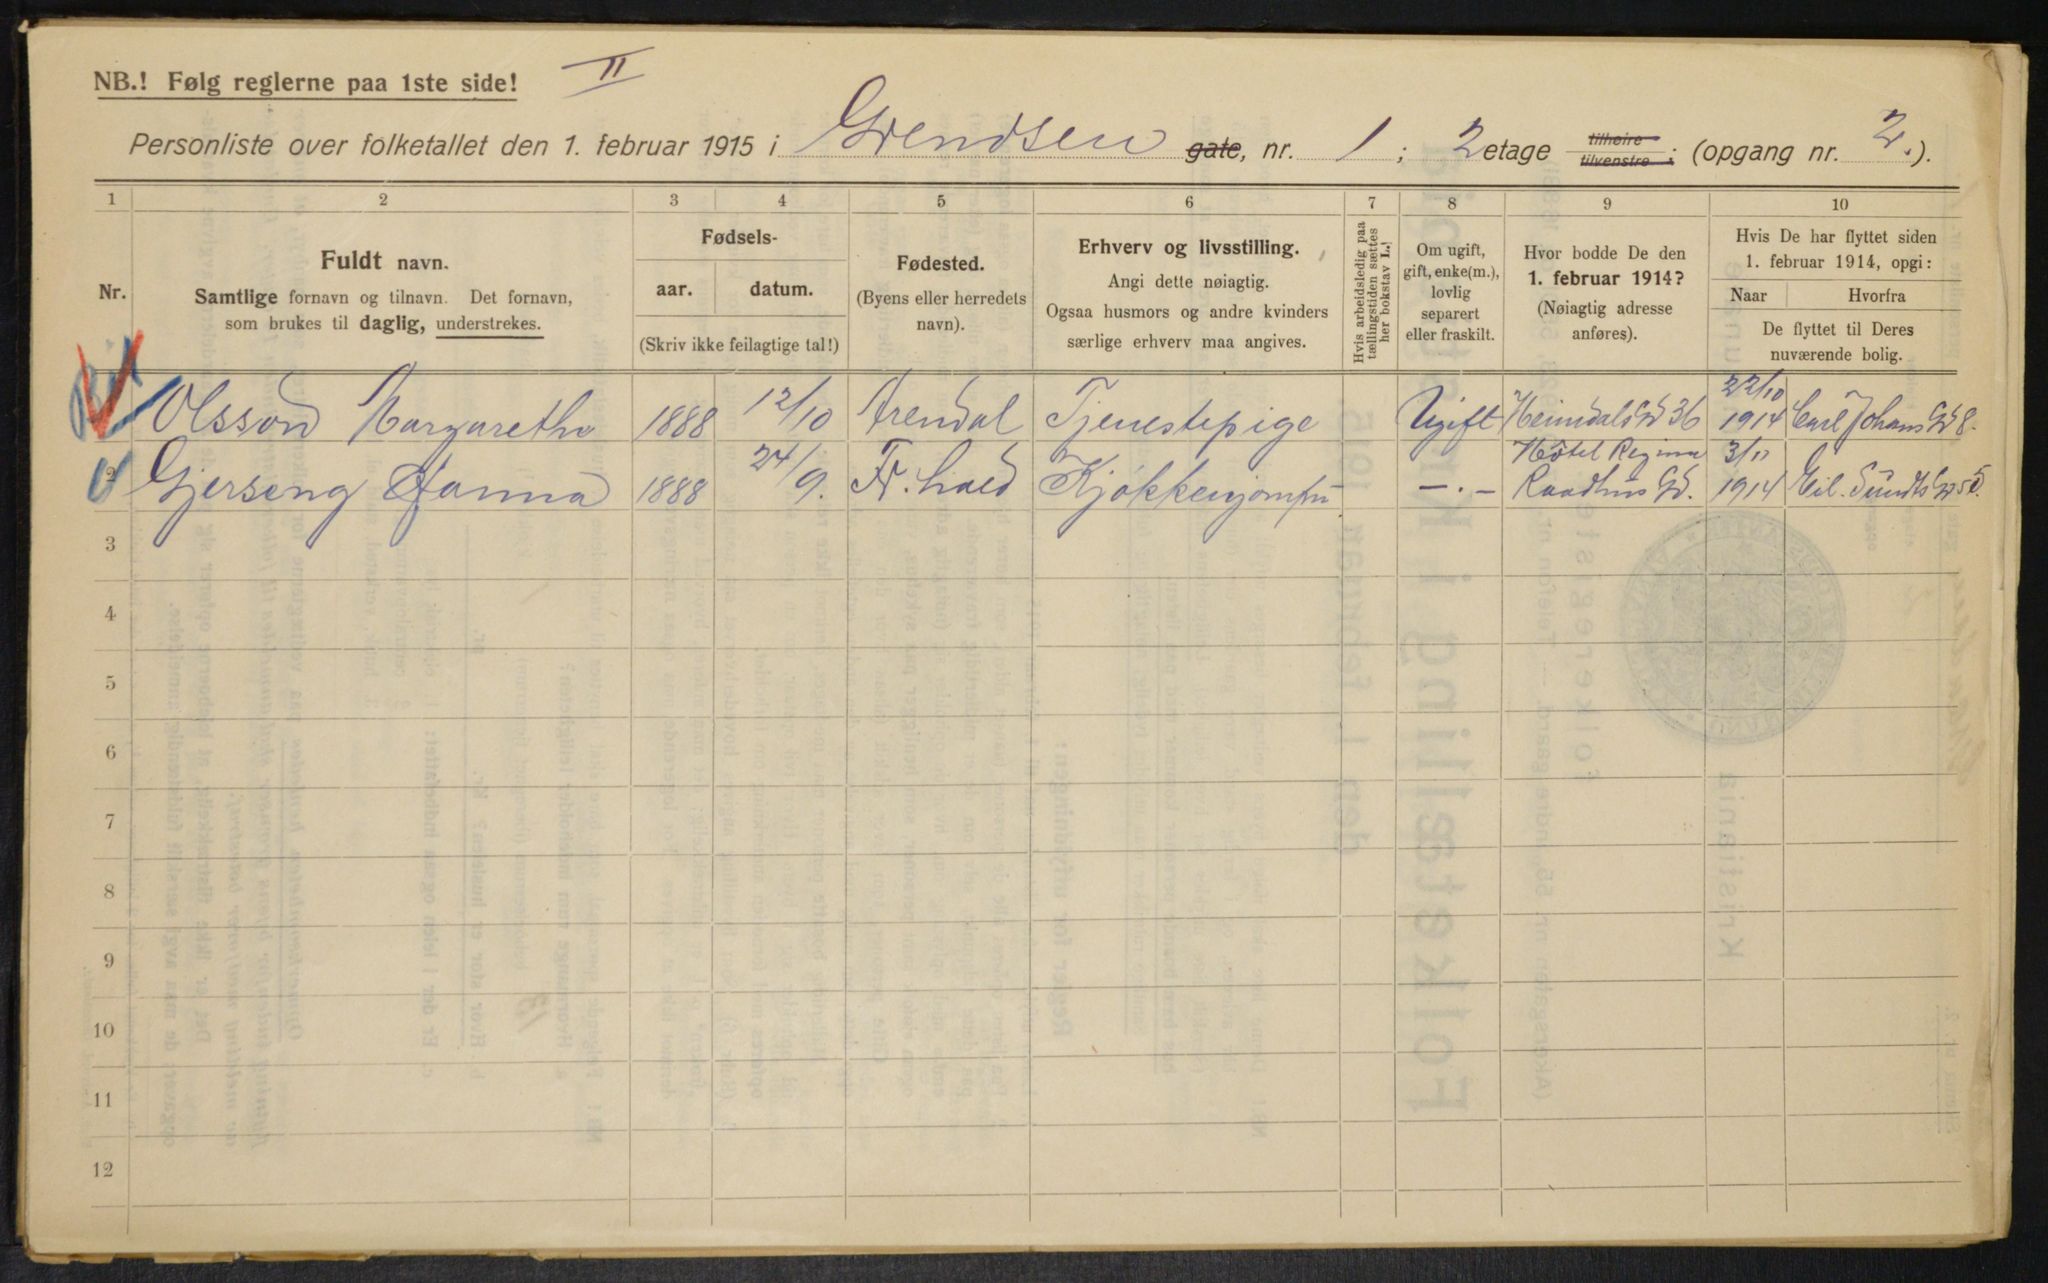 NB.! Følg reglerne paa 1ste side!
II
Personliste over folketallet den 1. februar 1915 i Grendsen gate, nr. 1; 2 etage tilheire tilvenstre : (opgang nr. 2.).
1 2 3 4 5 6 7 8 9 10
Nr.
Fuldt navn.
Samtlige fornavn og tilnavn. Det fornavn,
som brukes til daglig, understrekes.
Fødsels-
aar. datum.
(Skriv ikke feilagtige tal!)
Fødested.
(Byens eller herredets
navn).
Erhverv og livsstilling.
Angi dette nøiagtig.
Ogsaa husmors og andre kvinders
særlige erhverv maa angives.
Hvis arbeidsledig paa
tællingstiden sættes
her bokstav L.!
Om ugift,
gift, enke(m.),
lovlig
separert
eller fraskilt.
Hvor bodde De den
1. februar 1914?
(Nøiagtig adresse
anføres).
Hvis De har flyttet siden
1. februar 1914, opgi:
Naar Hvorfra
De flyttet til Deres
nuværende bolig.
Olsson Margarethe 1888 12/10 Arendal Tjenestepige Ugift Heimdals Gd 36 22/10 1914 Carl Johans Gd 8.
2 Gjerseng Hanna 1888 24/9. Fr.hald Kjøkkenjomfru —.— Hôtel Regina Raadhus Gd. 3/11 1914 Eil. Sündts Gd 5
3
4
5
6
7
8
9
10
11
12